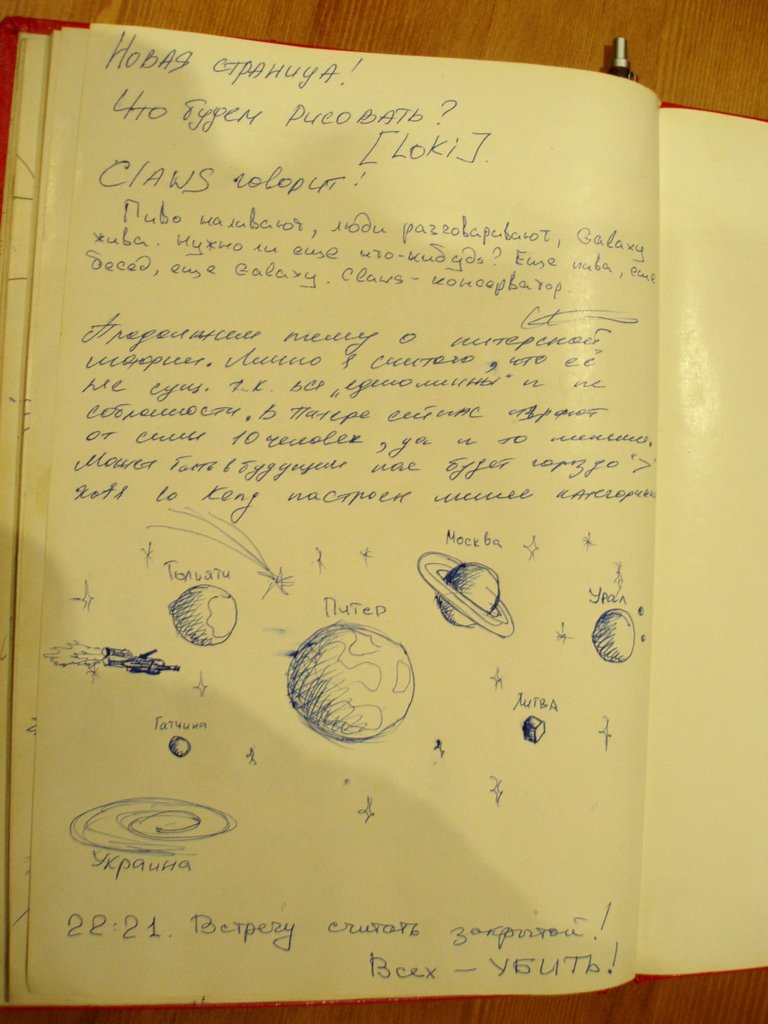 Новая страница!
Что будем рисовать?
[Loki].
Claws говорит!
Пиво наливают, люди разговаривают, Galaxy
жива. Нужно ли еще что-нибудь? Еще пива, еще
бесед, еще Galaxy. Claws - консерватор.
Продолжим тему о питерской
мафии. Лично я считаю, что её
не сущ. т.к. все „единоличны" и не
В Питере сейчас играют
от силы 10 человек, да и то меньше.
Может быть в будущем нас будет гораздо ">"
хотя
настроен менее
Москва
Тольяти
Питер
Урал
Литва
Гатчина
Украина
22:21. Встречу считать закрытой!
Всех - УБИТЬ!